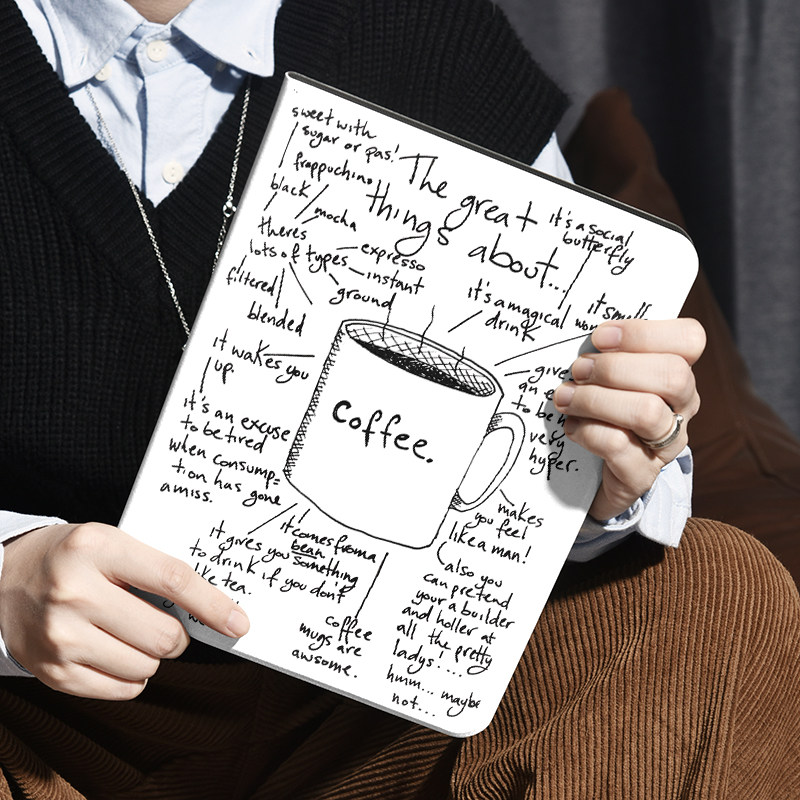 The great
things about...
sweet with
sugar or pas!
frappuchino
black
mocha
theres
lots of types
expresso
instant
ground
filtered
blended
it wakes you
up.
it's an excuse
to be tired
when consump=
tion has gone
amiss.
it gives you something
to drink if you don't
like tea.
it comes from a
bean
coffee
mugs are
awsome.
Coffee.
it's a social
butterfly
it's a magical
drink
it smells
give
an e
to be
very
hyper.
makes
you feel
like a man!
also you
can pretend
your a builder
and holler at
all the pretty
ladys'....
hmm... maybe
not...